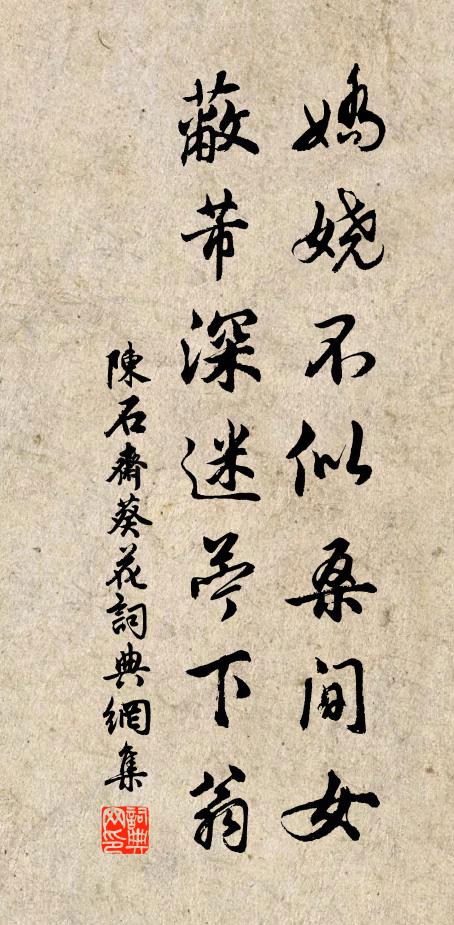 嬌嬈不似桑間女
蔽芾深迷苓下翁
陳石齋葵花詞典網集
詞典网印